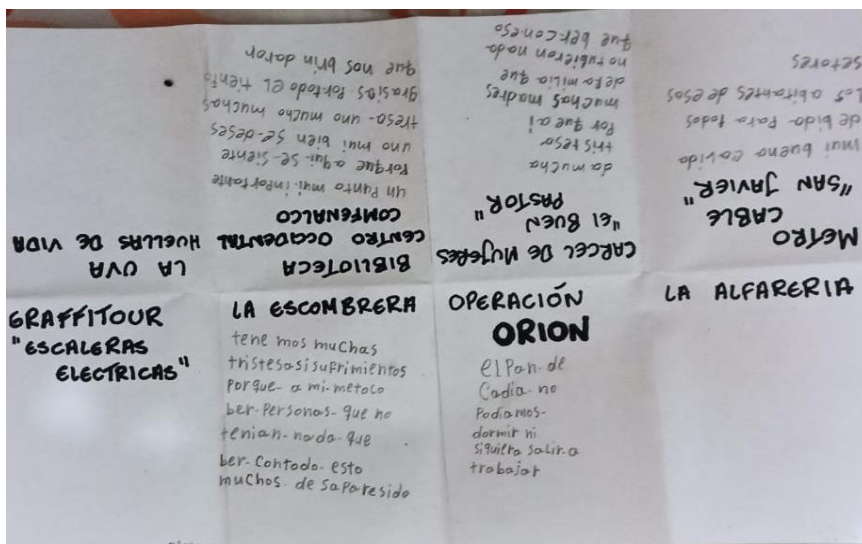 METRO
CABLE
"SAN JAVIER"
mui bueno cavido
de bido Para todos
Los abitantes de esos
setores
CARCEL DE MUJERES
"El BUEN
PASTOR"
da mucha
tris tesa
Por que ai
muchas madres
defa milia que
no tubieron nada
que ber.con eso
BIBLIOTECA
CENTRO OCCIDENTAL
COMFENALCO
un Punto mui.inportante
Porque a qui-se-siente
uno mui bien se-deses
tresa-uno mucho muchas
Grasias.Portodo el tienpo
que nos brin daron
LA UVA
HUELLAS DE VIDA
GRAFFITOUR
"ESCALERAS
ELECTRICAS"
LA ESCOMBRERA
tene mos muchas
tristesasisufrimientos
Porque-a mi-metoco
ber-Personas-que no
tenian-nada-que
ber-Contodo-esto
muchos-de saParesido
OPERACIÓN
ORION
elPan-de
Cadia-no
Podiamos-
dormir ni
siquiera salir.a
trabajar
LA ALFARERIA